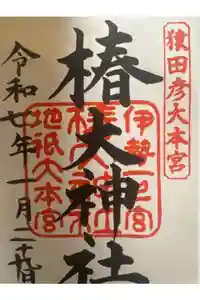 猿田彦大本宮
椿大神社
伊勢一之宮
椿大神社
地祇大本宮
令和七年一月二十九日